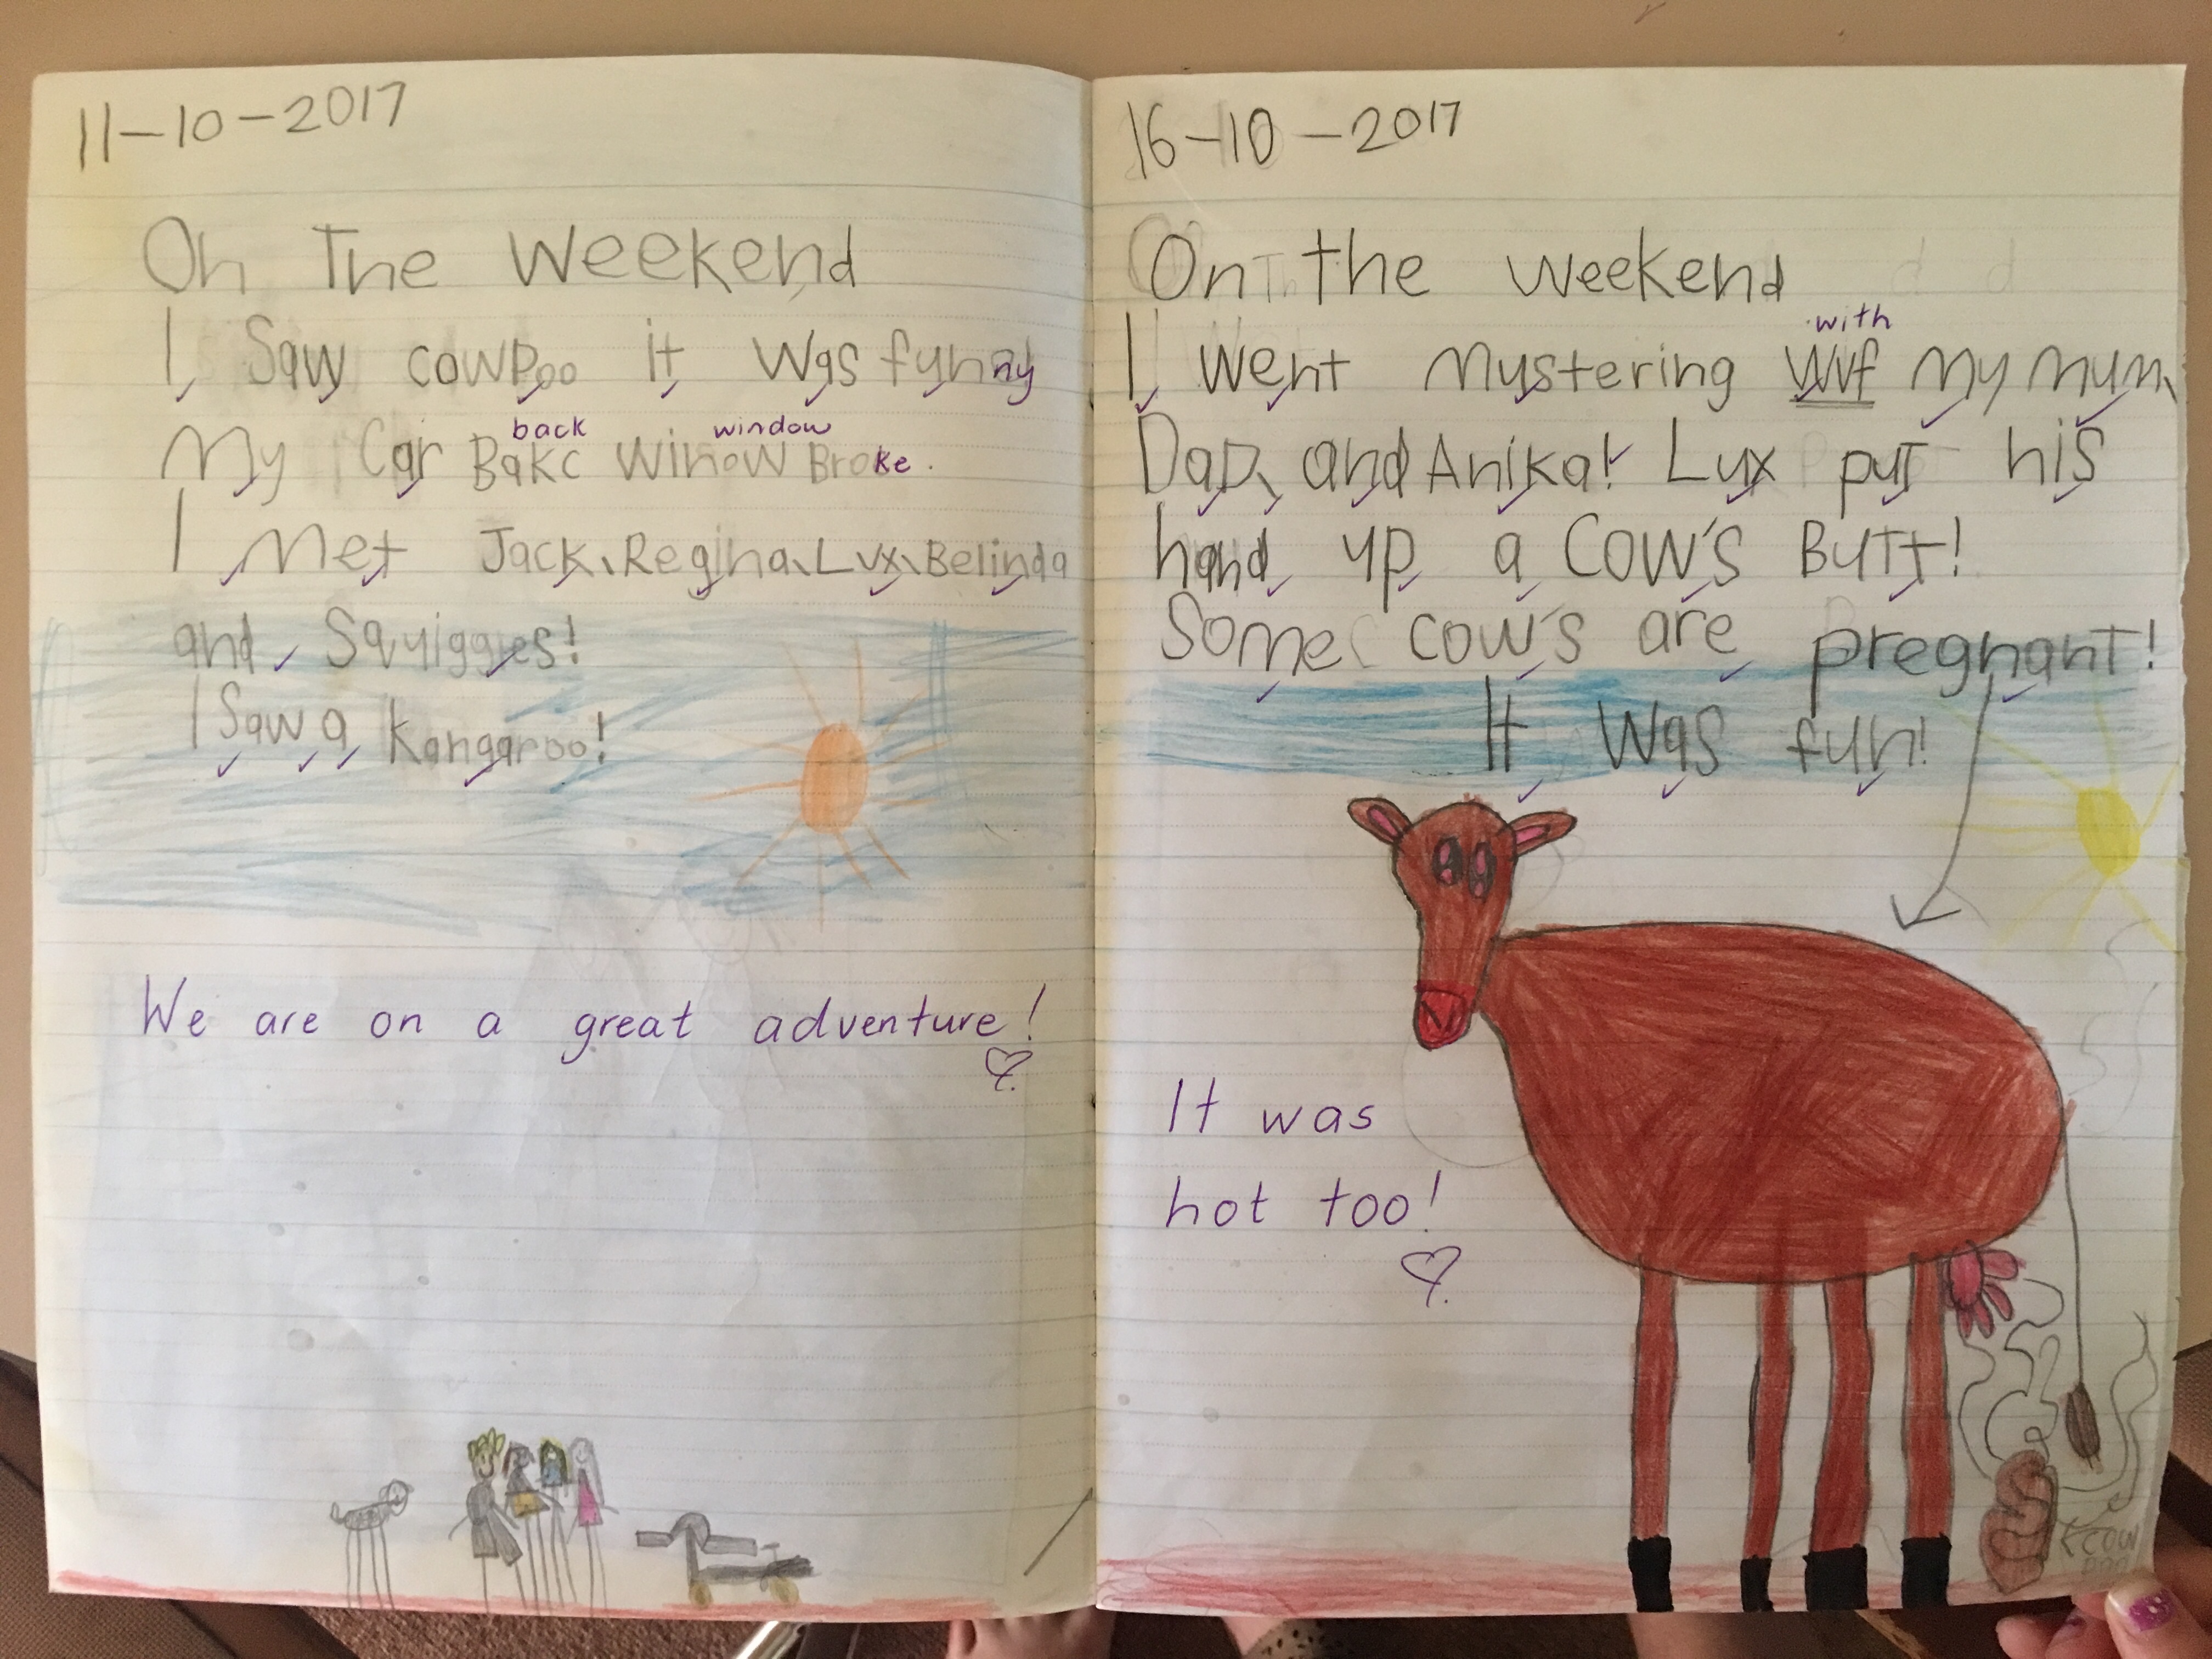 11-10-2017
On The Weekend
I Saw cowpoo it was funny
back window
My Car Bakc Winow Broke.
I Met Jack, Regina, Lux, Belinda
and Squiggles!
I Saw a Kangaroo!
We are on a great adventure!
16-10-2017
On the weekend
with
I Went Mystering Wvf My Mum,
Dad, and Anika! Lux put his
hand up a Cow's Butt!
Some cow's are pregnant!
It Was fun!
It was
hot too!
cow
poo